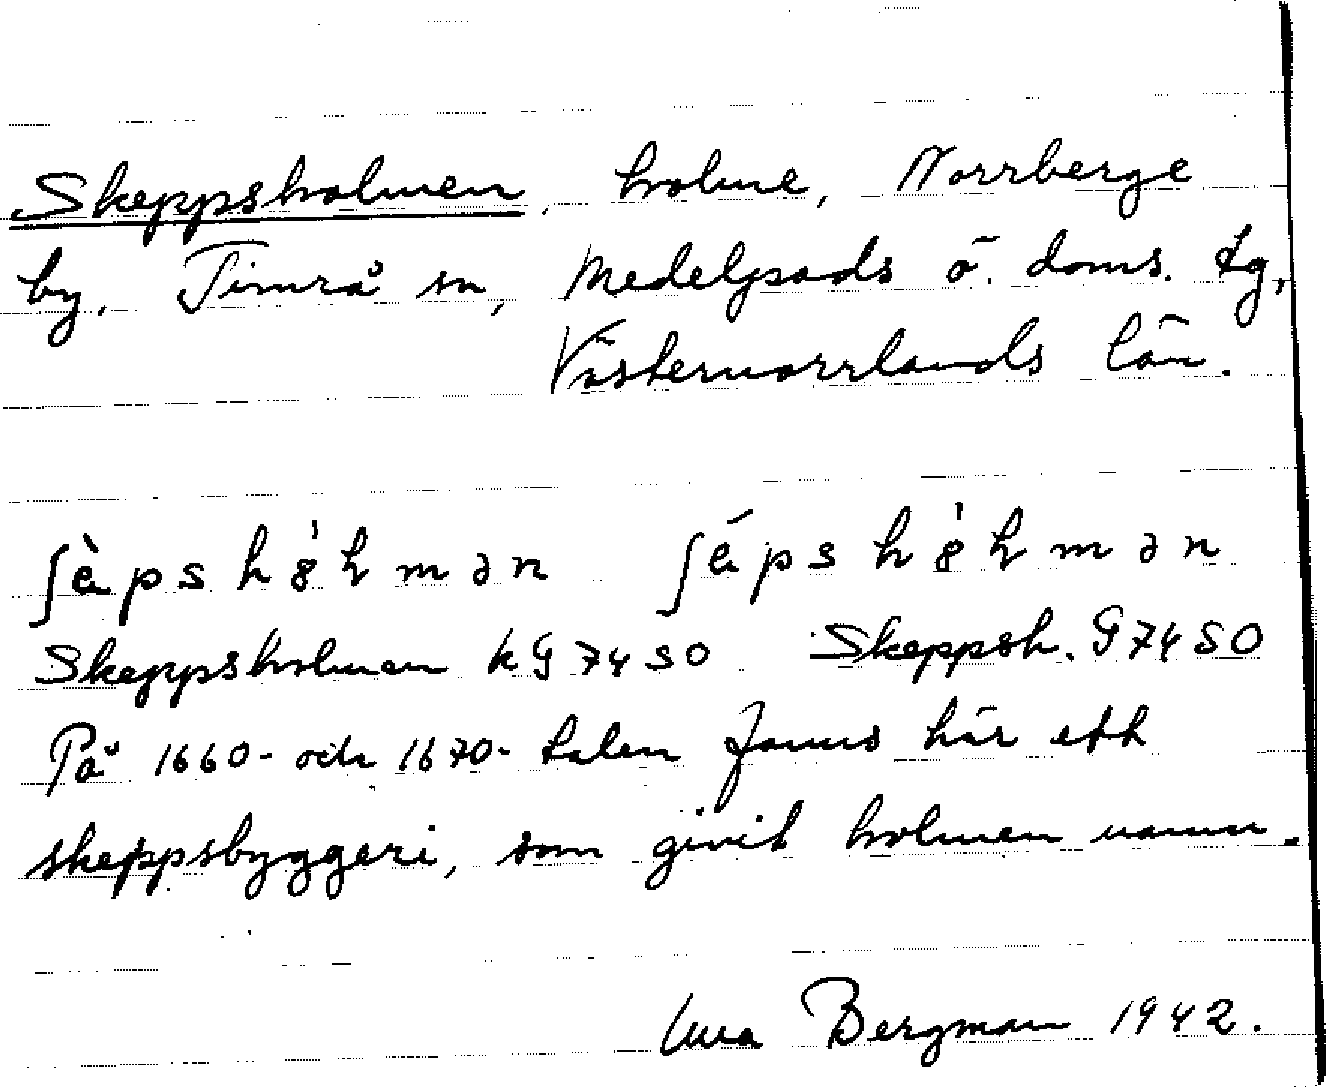 Skeppsholmen, holme, Norrberge
by, Timrå sn, Medelpads ö. doms. tg,
Västernorrlands län.
Skeppsholmen kG 74 SO Skeppsh. G 74 SO
På 1660- och 1670-talen fanns här ett
skeppsbyggeri, som givit holmen namn.
Bergman 1942.